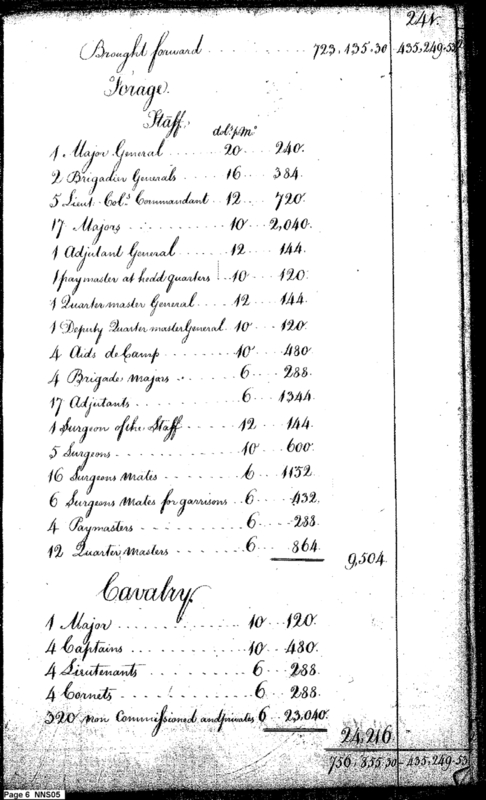 241.
Brought forward 723,135.30 435,249.53½
Forage.
Staff.
dols. p. mo.
1 Major General 20 240.
2 Brigadier Generals 16 384.
5 Lieut Cols. Commandant 12 720.
17 Majors 10 2,040.
1 Adjutant General 12 144.
1 paymaster at hedd quarters 10 120
1 Quarter master General 12 144.
1 Deputy Quarter master General 10 120.
4 Aids de Camp 10 480
4 Brigade Majors 6 288.
17 Adjutants 6 1344
1 Surgeon of the Staff 12 144.
5 Surgeons 10 600.
16 Surgeons Mates 6 1152
6 Surgeons Mates for garrisons 6 432
4 Paymasters 6 288
12 Quarter Masters 6 864.
9,504
Cavalry.
1 Major 10 120.
4 Captains 10 480.
4 Lieutenants 6 288
4 Cornets 6 288.
320 non Commissioned and privates 6 23,040.
24,216
756,855.30 435,249.53
Page 6 NNS05